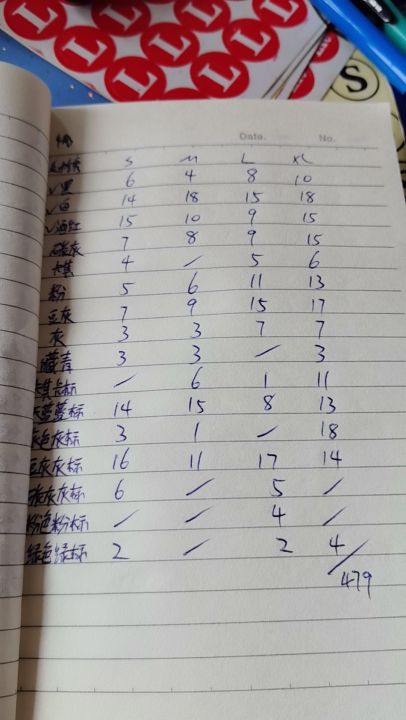 L L L L L L L L
S
Date. No.
S M L XL
√黑 6 4 8 10
√白 14 18 15 18
√酒红 15 10 9 15
碳灰 7 8 9 15
卡其 4 / 5 6
粉 5 6 11 13
豆灰 7 9 15 17
灰 3 3 7 7
藏青 3 3 / 3
卡其卡标 / 6 1 11
标 14 15 8 13
灰色灰标 3 1 / 18
豆灰灰标 16 11 17 14
碳灰灰标 6 / 5 /
粉色粉标 / / 4 /
绿色绿标 2 / 2 4
479